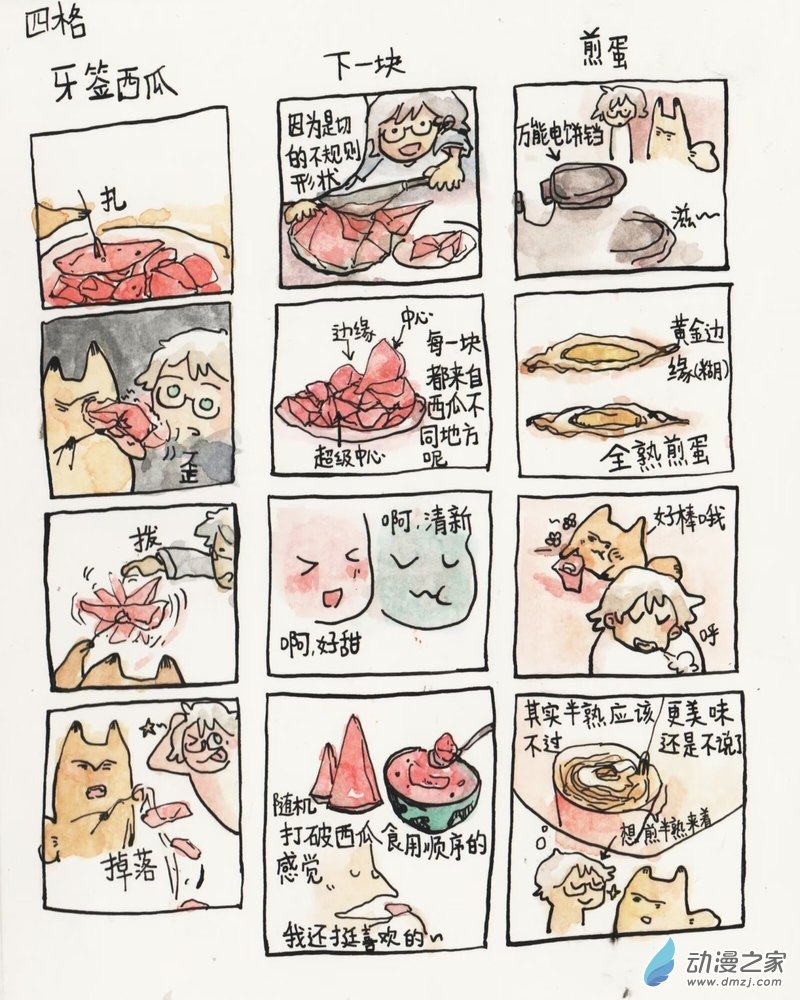 四格
牙签西瓜
扎
歪
拨
掉落
下一块
因为是切
的不规则
形状
边缘
中心
超级中心
每一块
都来自
西瓜不
同地方
呢
啊,清新
啊,好甜
随机
打破西瓜食用顺序的
感觉
我还挺喜欢的~
煎蛋
万能电饼铛
滋~~
黄金边
缘(糊)
全熟煎蛋
好棒哦
呼
其实半熟应该更美味
不过 还是不说了
想煎半熟来着
动漫之家
www.dmzj.com